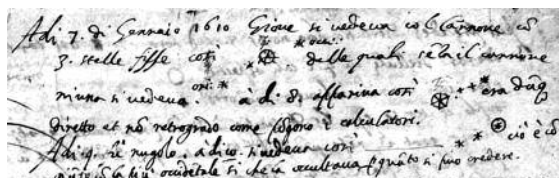 Adi 7. di Gennaio 1610 Giove si vedeva cō l Cannone cō
3. stelle fisse così delle quali sēza il cannone
niuna si vedeva. à dì 8. appariva così era dūq
diretto et nō retrogrado come pōgono i calculatori.
Adi 9. fù nugolo. à dì 10. si vedeva così cioè cō
la più occidētale sì che la occultava p quāto si può credere.